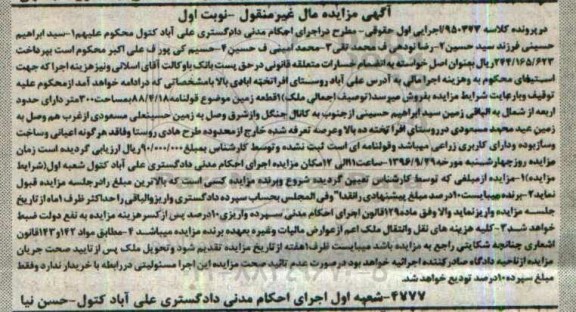 آگهی مزایده مال غیرمنقول -نوبت اول
در پرونده کلاسه ۹۵۰۳۷۳/اجرایی اول حقوقی- مطرح دراجرای احکام مدنی دادگستری علی آباد کتول محکوم علیهم۱-سید ابراهیم
حسینی فرزند سید حسین۲-رضا نودهی ف محمد تقی۳-محمد امینی ف حسین۴-حسیم کی پور ف علی اکبر محکوم است بپرداخت
۲۴۴/۱۶۵/۶۲۳ریال بعنوان اصل خواسته به انضمام خسارات متعلقه قانونی در حق پست بانک باوکالت آقای اسلانی ونیز هزینه اجرا که جهت
استیفای محکوم به وهزینه اجرا مالی به آدرس علی آباد روستای افراتخته ابادی بالا بامشخصاتی که درادامه خواهد آمد ازمحکوم علیه
توقیف وبارعایت شرایط مزایده بفروش میرسد(توصیف اجمالی ملک)۱قطعه زمین موضوع قولنامه۸۸/۴/۱۸بمساحت۳۰۰متر دارای حدود
اربعه از شمال به الباقی زمین سید ابراهیم حسینی ازجنوب به کانال جنگل وازشرق وصل به زمین حسینعلی مسعودی ازغرب هم وصل به
زمین عید محمد مسعودی درروستای افرا تخته ده بالا وعرصه تعرفه شده خارج ازمحدوده طرح هادی روستا وفاقد هرگونه اعیانی وساخت
وسازبوده ودارای کاربری زراعی میباشد وقولنامه ای است ثبت نشده وتوسط کارشناس بمبلغ۹۰/۰۰۰/۰۰۰ریال ارزیابی گردیده است زمان
مزایده روزچهارشنبه مورخه۱۳۹۶/۹/۲۹-ساعت۱۱الی ۱۲مکان مزایده اجرای احکام مدنی دادگستری علی آباد کتول شعبه اول(شرایط
مزایده)۱-مزایده ازمبلغی که توسط کارشناس تعیین گردیده شروع وبرنده مزایده کسی است که بالاترین مبلغ رادرجلسه مزایده قبول
نماید۲-برنده میبایست۱۰درصد مبلغ پیشنهادی رانقدا"وفی المجلس بحساب سپرده دادگستری واریزوالباقی راحداکثر ظرف۱ماه ازتاریخ
جلسه مزایده واریز نماید والا وفق ماده۱۲۹قانون اجرای احکام مدنی سپرده واریزی۱۰درصد پس ازکسرهزینه مزایده به نفع دولت ضبط
خواهد شد۳-کلیه هزینه های نقل وانتقال ملک اعم ازعوارض مالیات وغیره بعهده برنده مزایده میباشد ۴-مطابق مواد ۱۴۲و۱۴۳قانون
اشعاری چنانچه شکایتی راجع به مزایده باشد میبایست ظرف۱هفته از تاریخ مزایده تقدیم شود وتحویل ملک پس ازتایید صحت جریان
مزایده ازناحیه دادگاه صادرکننده اجرائیه خواهد بود درصورت عدم تائید صحت مزایده این اجرا مسئولیتی دررابطه با خریدار ندارد وفقط
مبلغ سپرده۱۰درصد تودیع خواهد شد.
۴۷۷۷-شعبه اول اجرای احکام مدنی دادگستری علی آباد کتول-حسن نیا